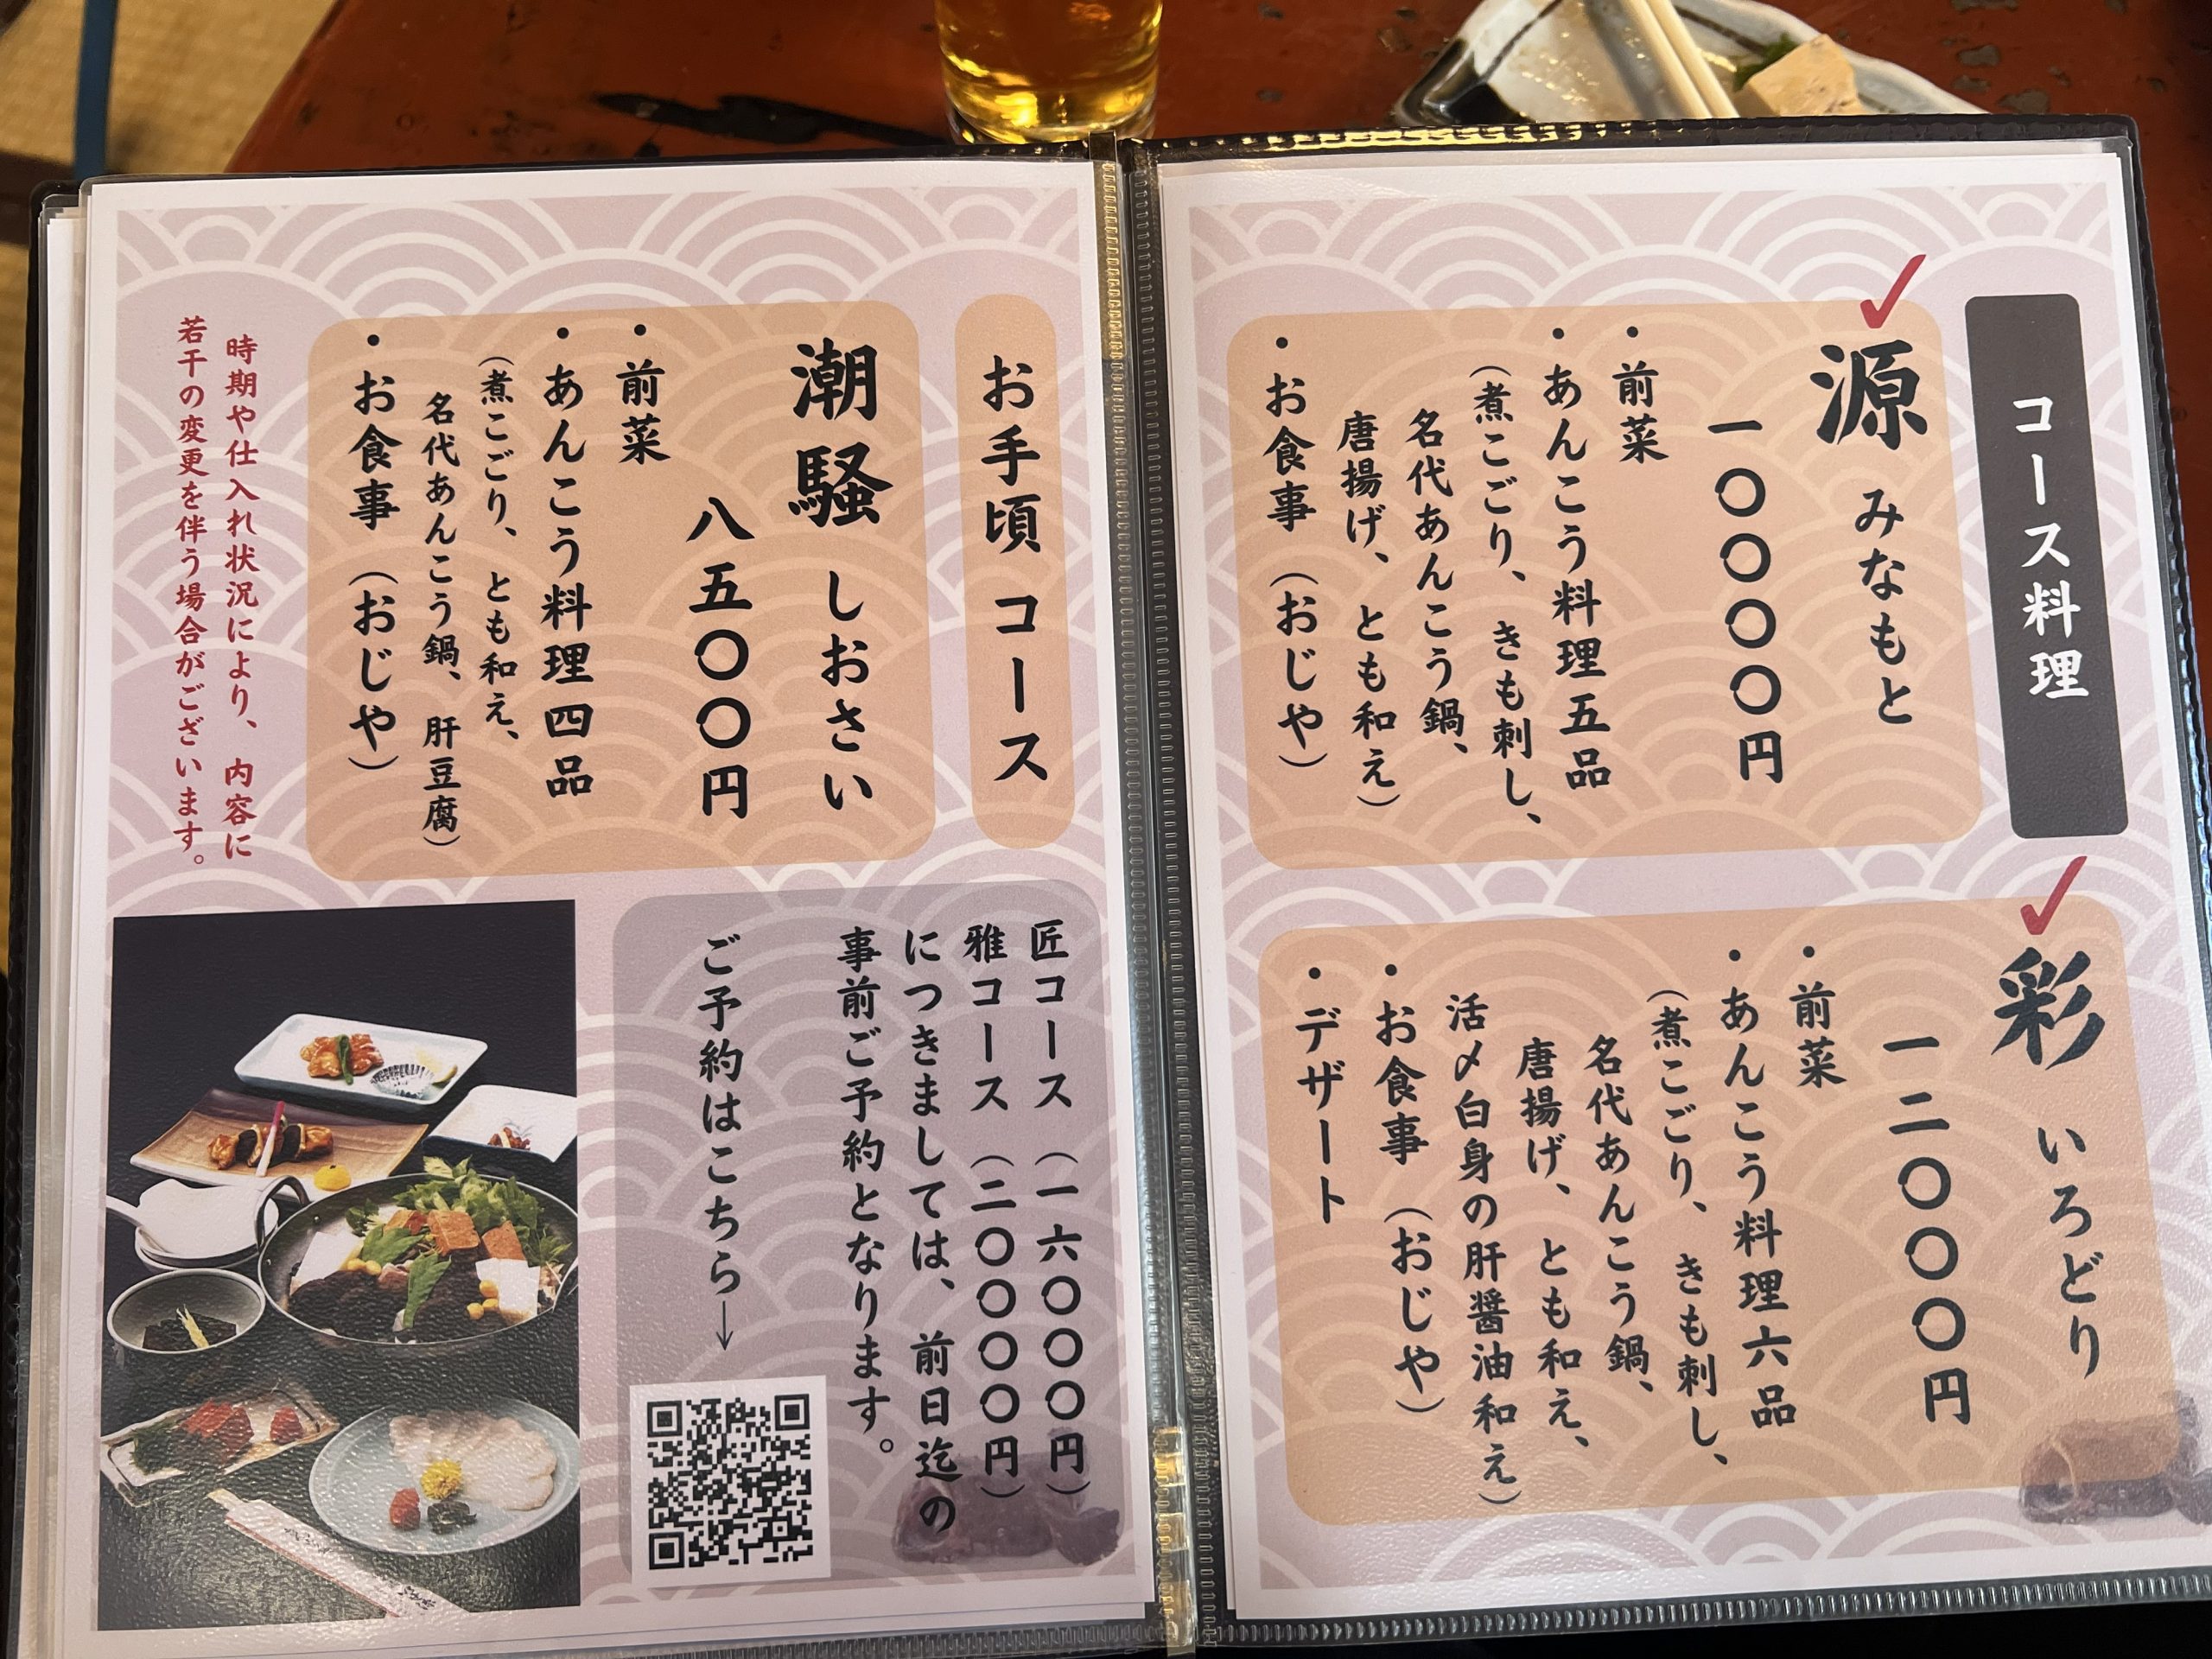 コース料理
源 みなもと
一〇〇〇〇円
・前菜
・あんこう料理五品
（煮こごり、きも刺し、
名代あんこう鍋、
唐揚げ、とも和え）
・お食事（おじや）
彩 いろどり
一二〇〇〇円
・前菜
・あんこう料理六品
（煮こごり、きも刺し、
名代あんこう鍋、
唐揚げ、とも和え、
活〆白身の肝醤油和え）
・お食事（おじや）
・デザート
お手頃コース
潮騒 しおさい
八五〇〇円
・前菜
・あんこう料理四品
（煮こごり、とも和え、
名代あんこう鍋、肝豆腐）
・お食事（おじや）
時期や仕入れ状況により、内容に
若干の変更を伴う場合がございます。
匠コース（一六〇〇〇円）
雅コース（二〇〇〇〇円）
につきましては、前日迄の
事前ご予約となります。
ご予約はこちら→